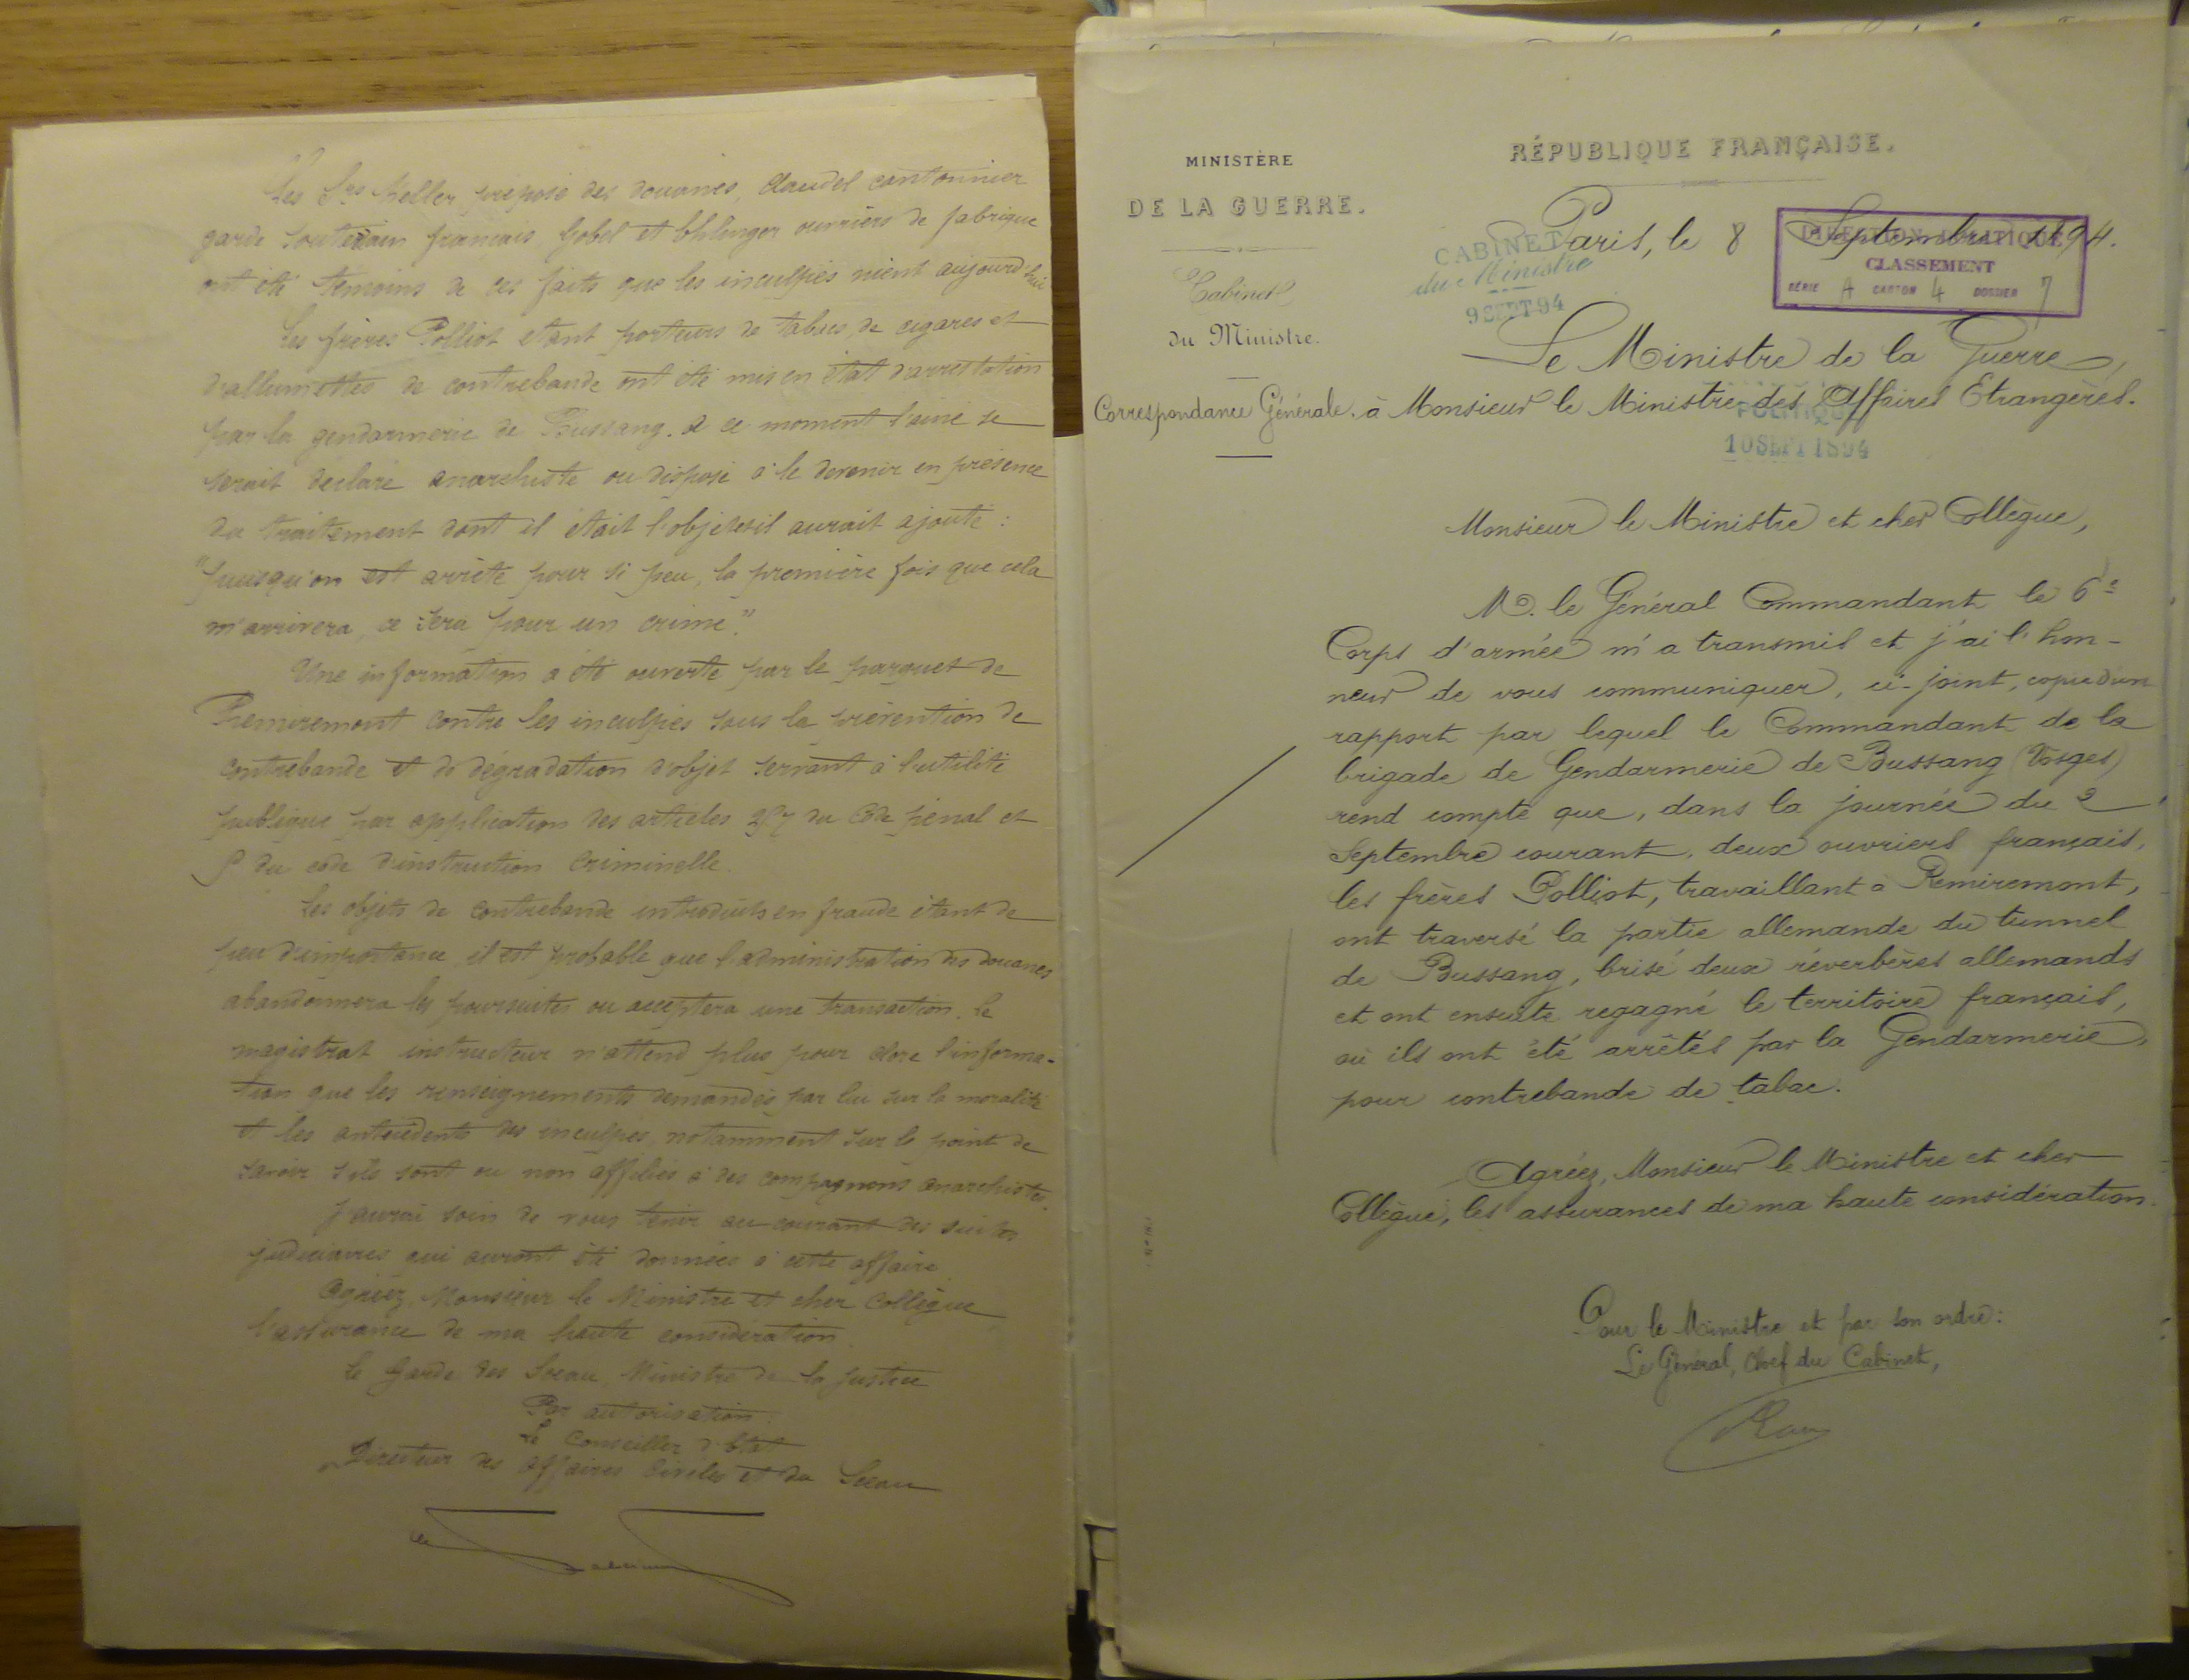 Les Srs Keller préposé des douanes, Claudel cantonnier
garde souterrain français, Gobel et Ehlinger ouvriers de fabrique
ont été témoins de ces faits que les inculpés nient aujourd'hui
Les frères Polliot étant porteurs de tabacs, de cigares et
d'allumettes de contrebande ont été mis en état d'arrestation
par la gendarmerie de Bussang. A ce moment l'aîné se
serait déclaré anarchiste ou disposé à le devenir en présence
du traitement dont il était l'objet et il aurait ajouté :
"puisqu'on est arrêté pour si peu, la première fois que cela
m'arrivera, ce sera pour un crime."
Une information a été ouverte par le parquet de
Remiremont contre les inculpés sous la prévention de
contrebande et de dégradation d'objet servant à l'utilité
publique par application des articles 257 du Code pénal et
du code d'instruction Criminelle.
Les objets de contrebande introduits en fraude étant de
peu d'importance, il est probable que l'administration des douanes
abandonnera les poursuites ou acceptera une transaction. Le
magistrat instructeur n'attend plus pour clore l'informa-
tion que les renseignements demandés par lui sur la moralité
et les antécédents des inculpés, notamment sur le point de
savoir s'ils sont ou non affiliés à des compagnons anarchistes.
J'aurai soin de vous tenir au courant des suites
judiciaires qui auront été données à cette affaire
Agréez, Monsieur le Ministre et cher Collègue
l'assurance de ma haute considération.
Le Garde des Sceau, Ministre de la Justice
Par autorisation.
Le Conseiller d'Etat
Directeur des affaires Civiles et du Sceau
MINISTÈRE
DE LA GUERRE.
Cabinet
du Ministre.
Correspondance Générale.
RÉPUBLIQUE FRANÇAISE.
Paris, le 8 Septembre 1894.
CABINET
du Ministre
9 SEPT 94
DIRECTION POLITIQUE
CLASSEMENT
SÉRIE A CARTON 4 DOSSIER 7
Le Ministre de la Guerre,
à Monsieur le Ministre des Affaires Etrangères.
POLITIQUE
10 SEPT 1894
Monsieur le Ministre et cher Collègue,
M. le Général Commandant le 6e
Corps d'armée m'a transmis et j'ai l'hon-
neur de vous communiquer, ci-joint, copie d'un
rapport par lequel le Commandant de la
brigade de Gendarmerie de Bussang (Vosges)
rend compte que, dans la journée du 2
Septembre courant, deux ouvriers français,
les frères Polliot, travaillant à Remiremont,
ont traversé la partie allemande du tunnel
de Bussang, brisé deux réverbères allemands
et ont ensuite regagné le territoire français,
où ils ont été arrêtés par la Gendarmerie,
pour contrebande de tabac.
Agréez, Monsieur le Ministre et cher
Collègue, les assurances de ma haute considération.
Pour le Ministre et par son ordre:
Le Général, Chef du Cabinet,